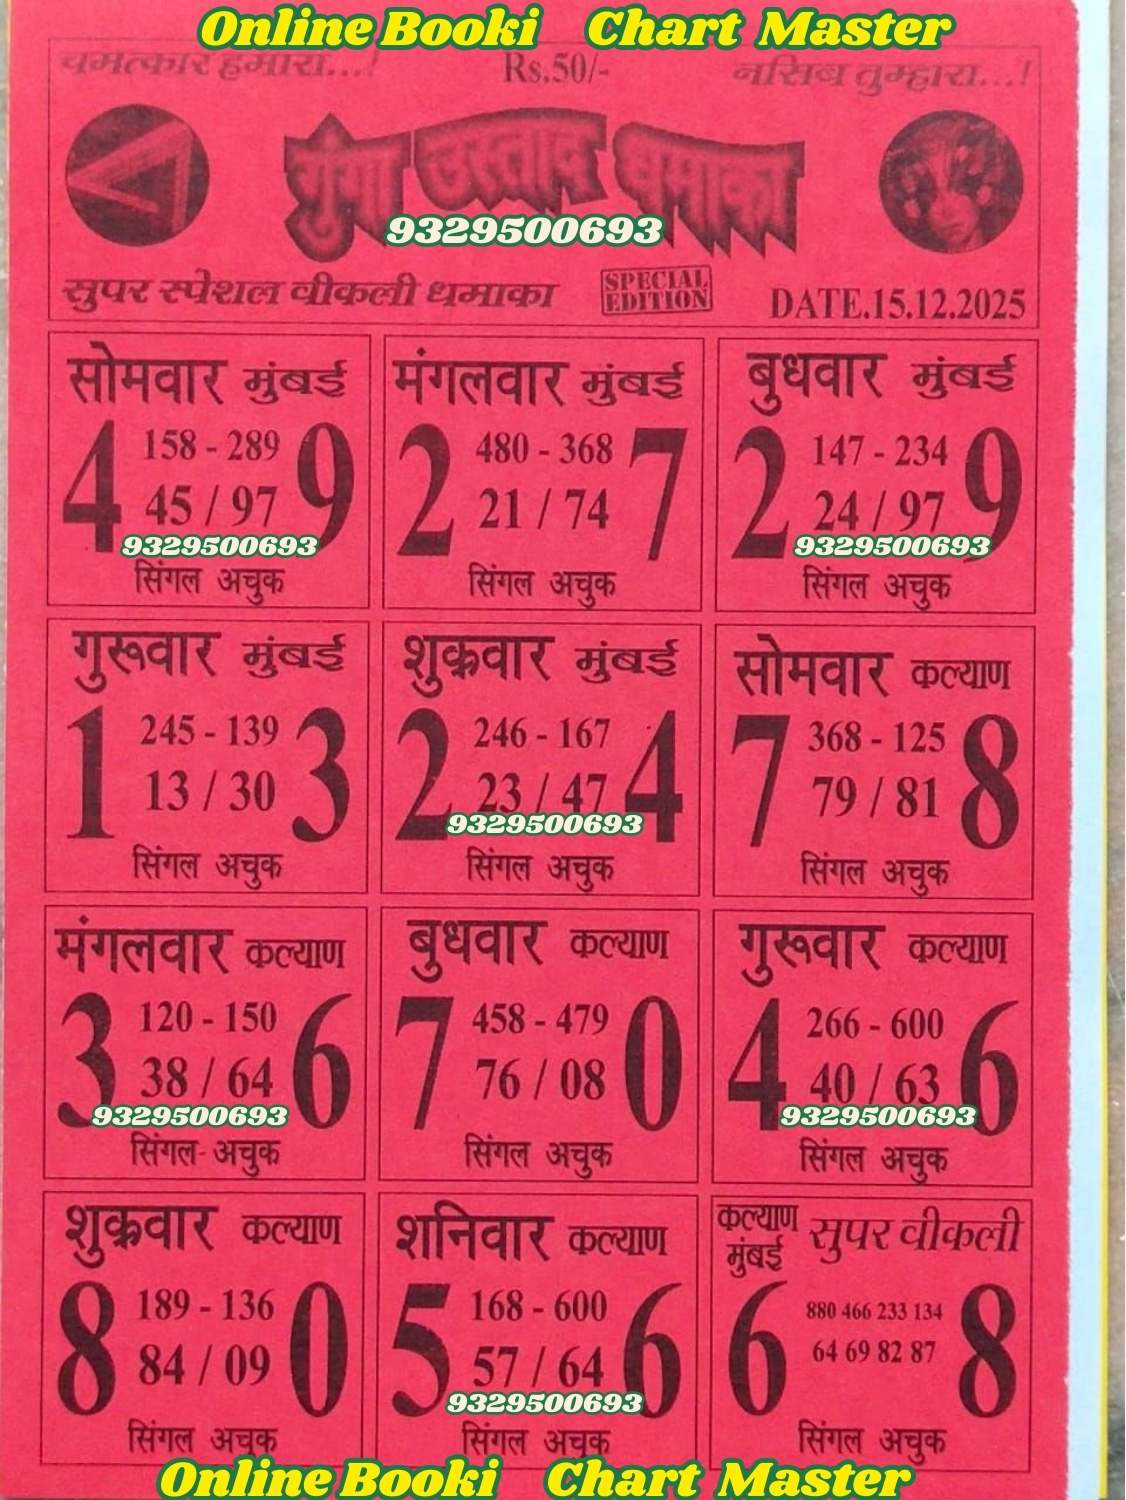 Online Booki Chart Master
चमत्कार हमारा...! Rs.50/- नसिब तुम्हारा...!
गुंगा उस्ताद धमाका
9329500693
सुपर स्पेशल वीकली धमाका SPECIAL EDITION DATE.15.12.2025
सोमवार मुंबई
4 158 - 289 9
45 / 97
9329500693
सिंगल अचुक
मंगलवार मुंबई
2 480 - 368 7
21 / 74
सिंगल अचुक
बुधवार मुंबई
2 147 - 234 9
24 / 97
9329500693
सिंगल अचुक
गुरूवार मुंबई
1 245 - 139 3
13 / 30
सिंगल अचुक
शुक्रवार मुंबई
2 246 - 167 4
23 / 47
9329500693
सिंगल अचुक
सोमवार कल्याण
7 368 - 125 8
79 / 81
सिंगल अचुक
मंगलवार कल्याण
3 120 - 150 6
38 / 64
9329500693
सिंगल अचुक
बुधवार कल्याण
7 458 - 479 0
76 / 08
सिंगल अचुक
गुरूवार कल्याण
4 266 - 600 6
40 / 63
9329500693
सिंगल अचुक
शुक्रवार कल्याण
8 189 - 136 0
84 / 09
सिंगल अचुक
शनिवार कल्याण
5 168 - 600 6
57 / 64
9329500693
सिंगल अचुक
कल्याण मुंबई सुपर वीकली
6 880 466 233 134 8
64 69 82 87
सिंगल अचुक
Online Booki Chart Master